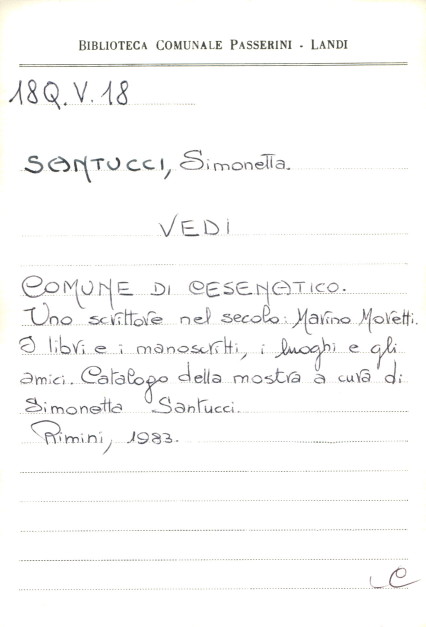 BIBLIOTECA COMUNALE PASSERINI - LANDI
18Q.V.18
SANTUCCI, Simonetta.
VEDI
COMUNE DI CESENATICO.
Uno scrittore nel secolo: Marino Moretti.
I libri e i manoscritti, i luoghi e gli
amici. Catalogo della mostra a cura di
Simonetta Santucci.
Rimini, 1983.